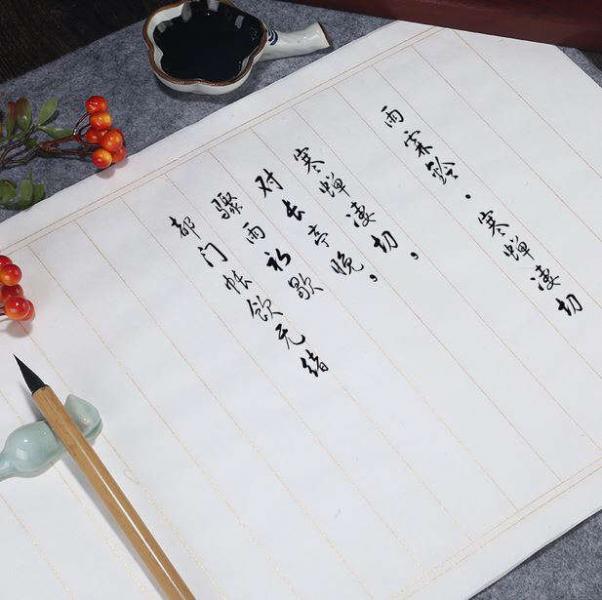 雨霖鈴·寒蝉凄切
寒蝉凄切,
对长亭晚,
骤雨初歇
都门帐饮无绪